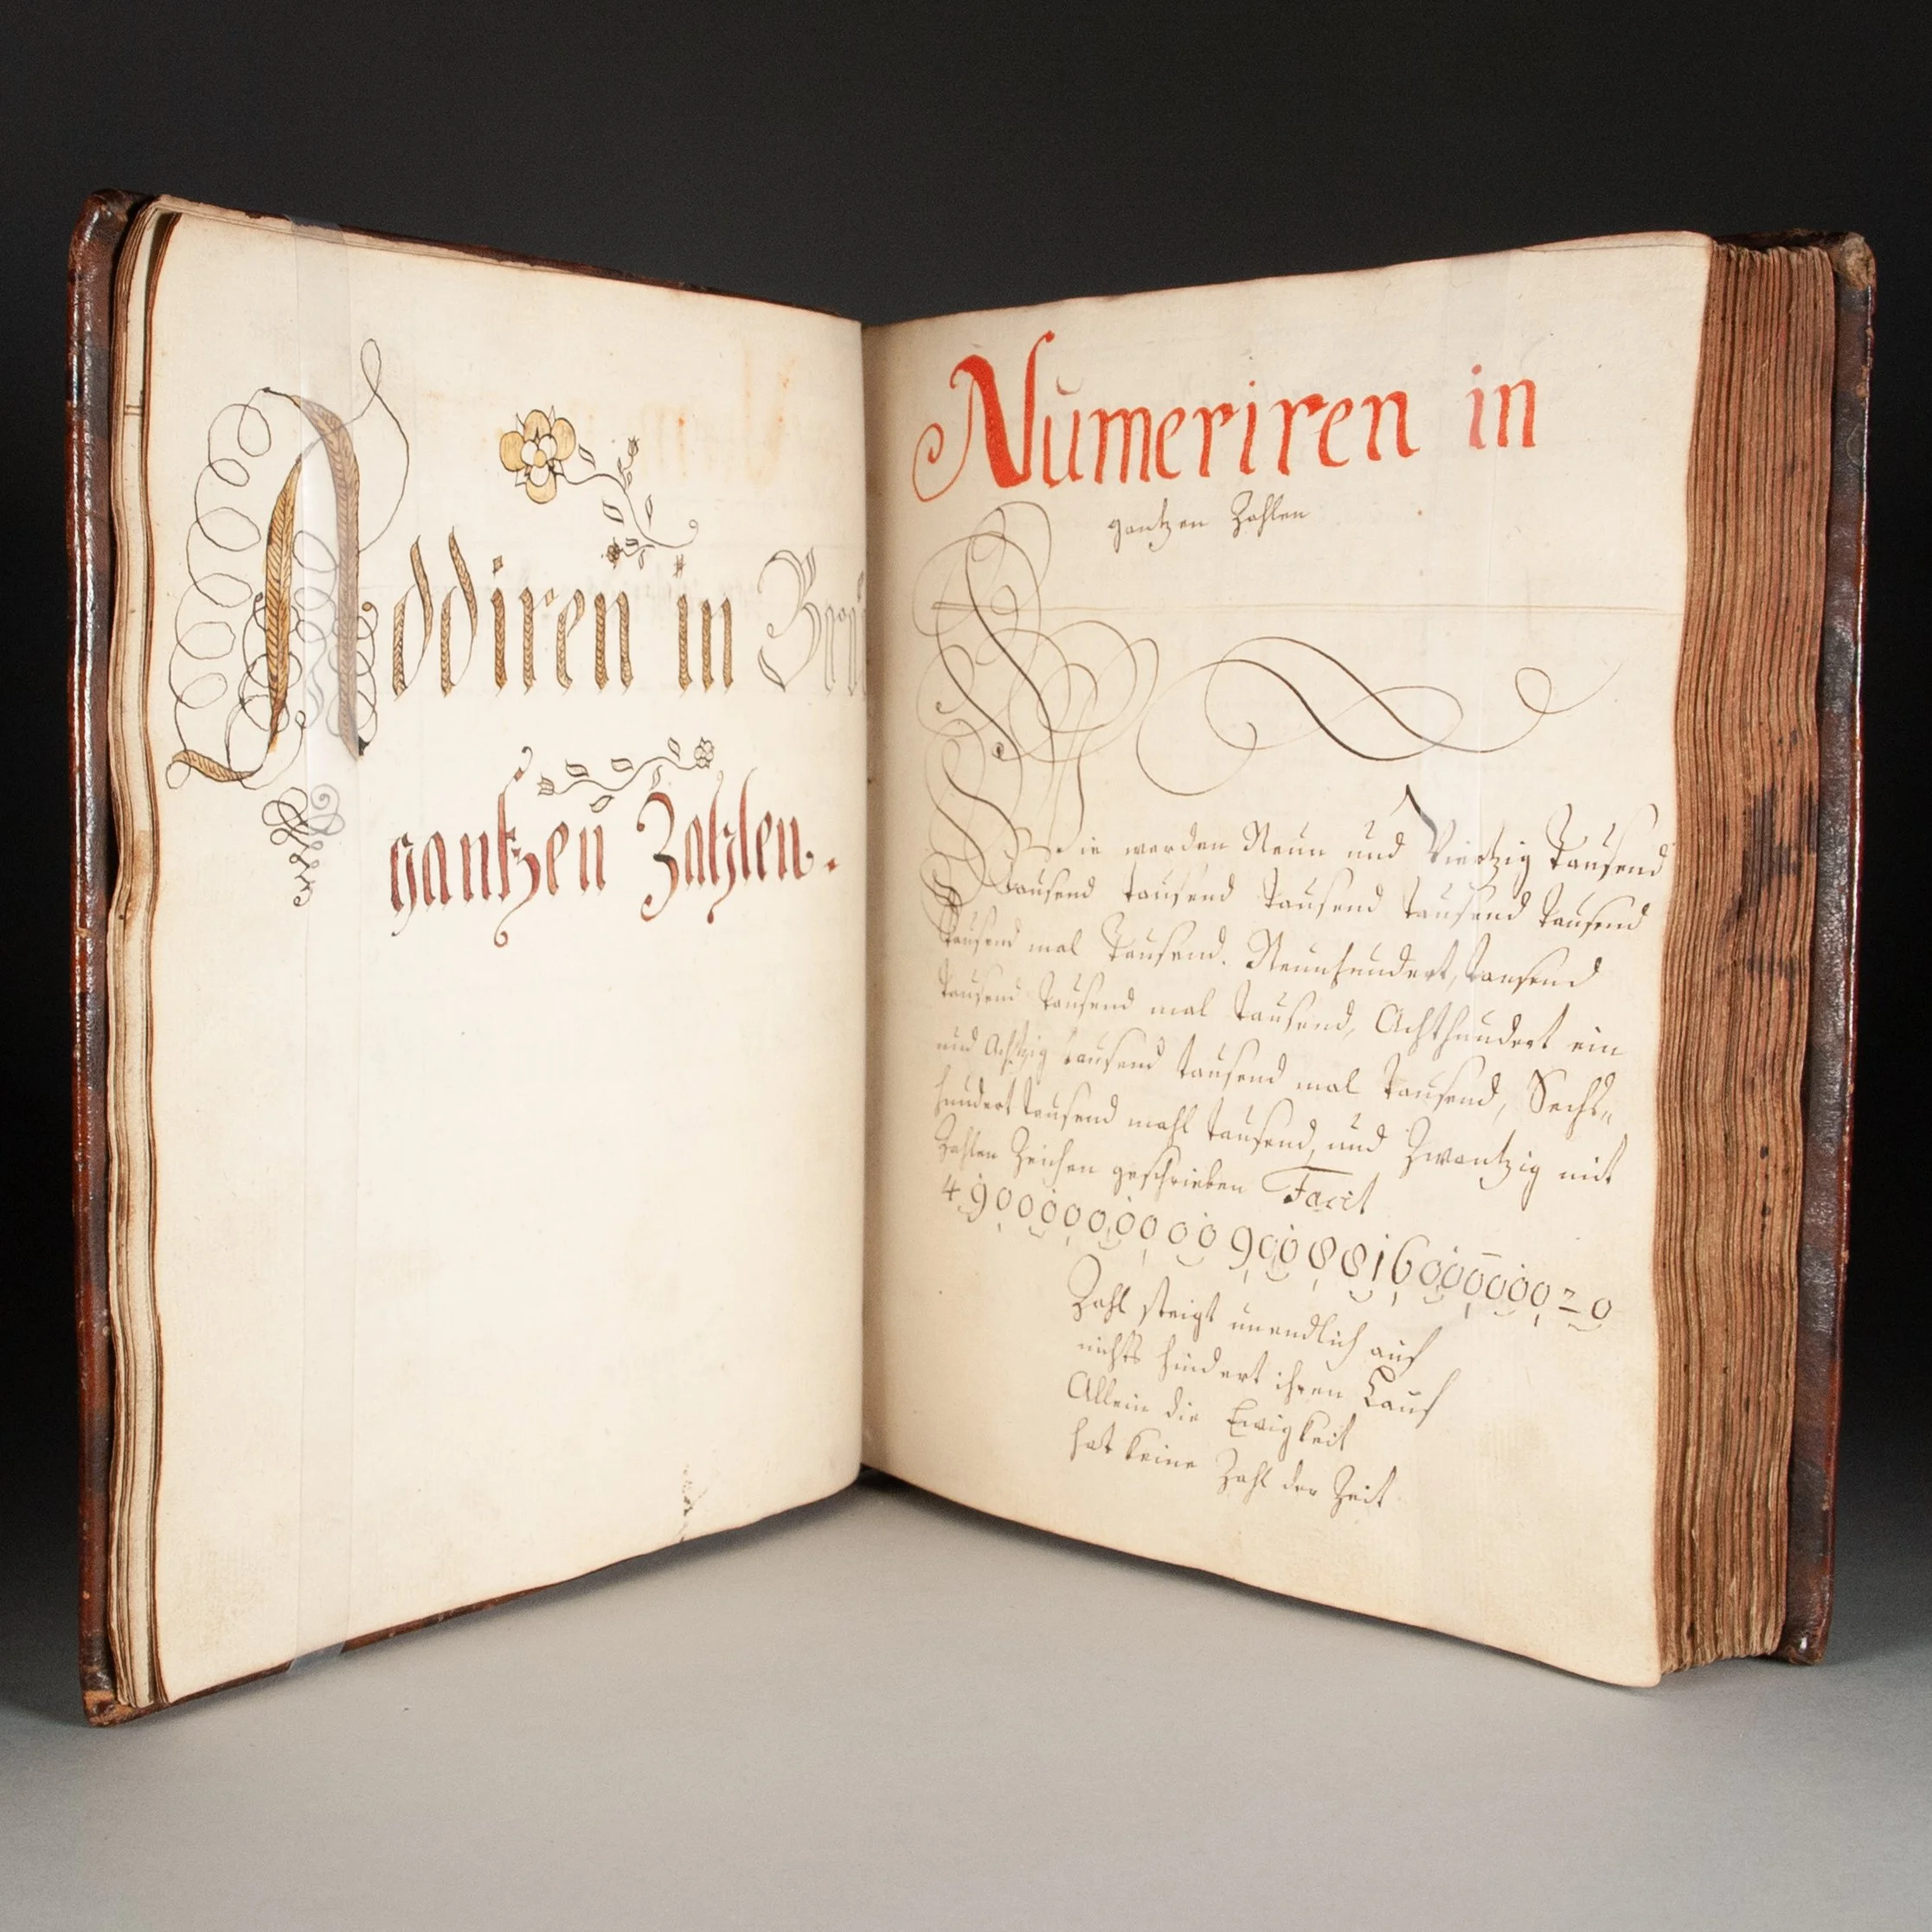 Addiren in
gantzen Zahlen.
Numeriren in
gantzen Zahlen
Wie werden Neun und Viertzig Tausend
tausend tausend tausend tausend tausend
tausend mal Tausend. Neunhundert, tausend
tausend tausend mal tausend, Achthundert ein
und Achtzig tausend tausend mal tausend, Sechs=
hundert tausend mahl tausend, und Zwantzig mit
Zahlen Zeichen geschrieben Facit
Zahl steigt unendlich auf
nichts hindert ihren Lauf
Allein die Ewigkeit
hat keine Zahl der Zeit